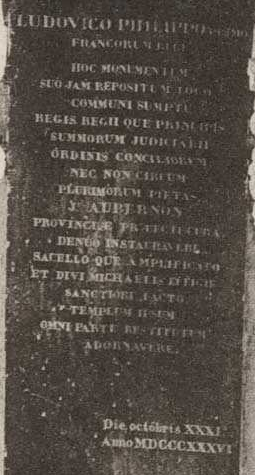 LUDOVICO PHILIPPO
FRANCORUM REGI
HOC MONUMENTUM
SUO JAM REPOSITUM LOCO
COMMUNI SUMPTU
REGIS REGII QUE PRINCIPIS
SUMMORUM JUDICIALII
ORDINIS CONCILIORUM
NEC NON CIRCUM
PLURIMORUM PIETAS
AUBERNON
PROVINCIÆ PRÆFECTI CURA
DENUO INSTAURAVERE
SACELLO QUE AMPLIFICATO
ET DIVI MICHAELIS EFFIGIE
SANCTIORI FACTO
TEMPLUM IPSUM
OMNI PARTE RESTITUTUM
ADORNAVERE.
Die octobris XXXI
Anno MDCCCXXXVI